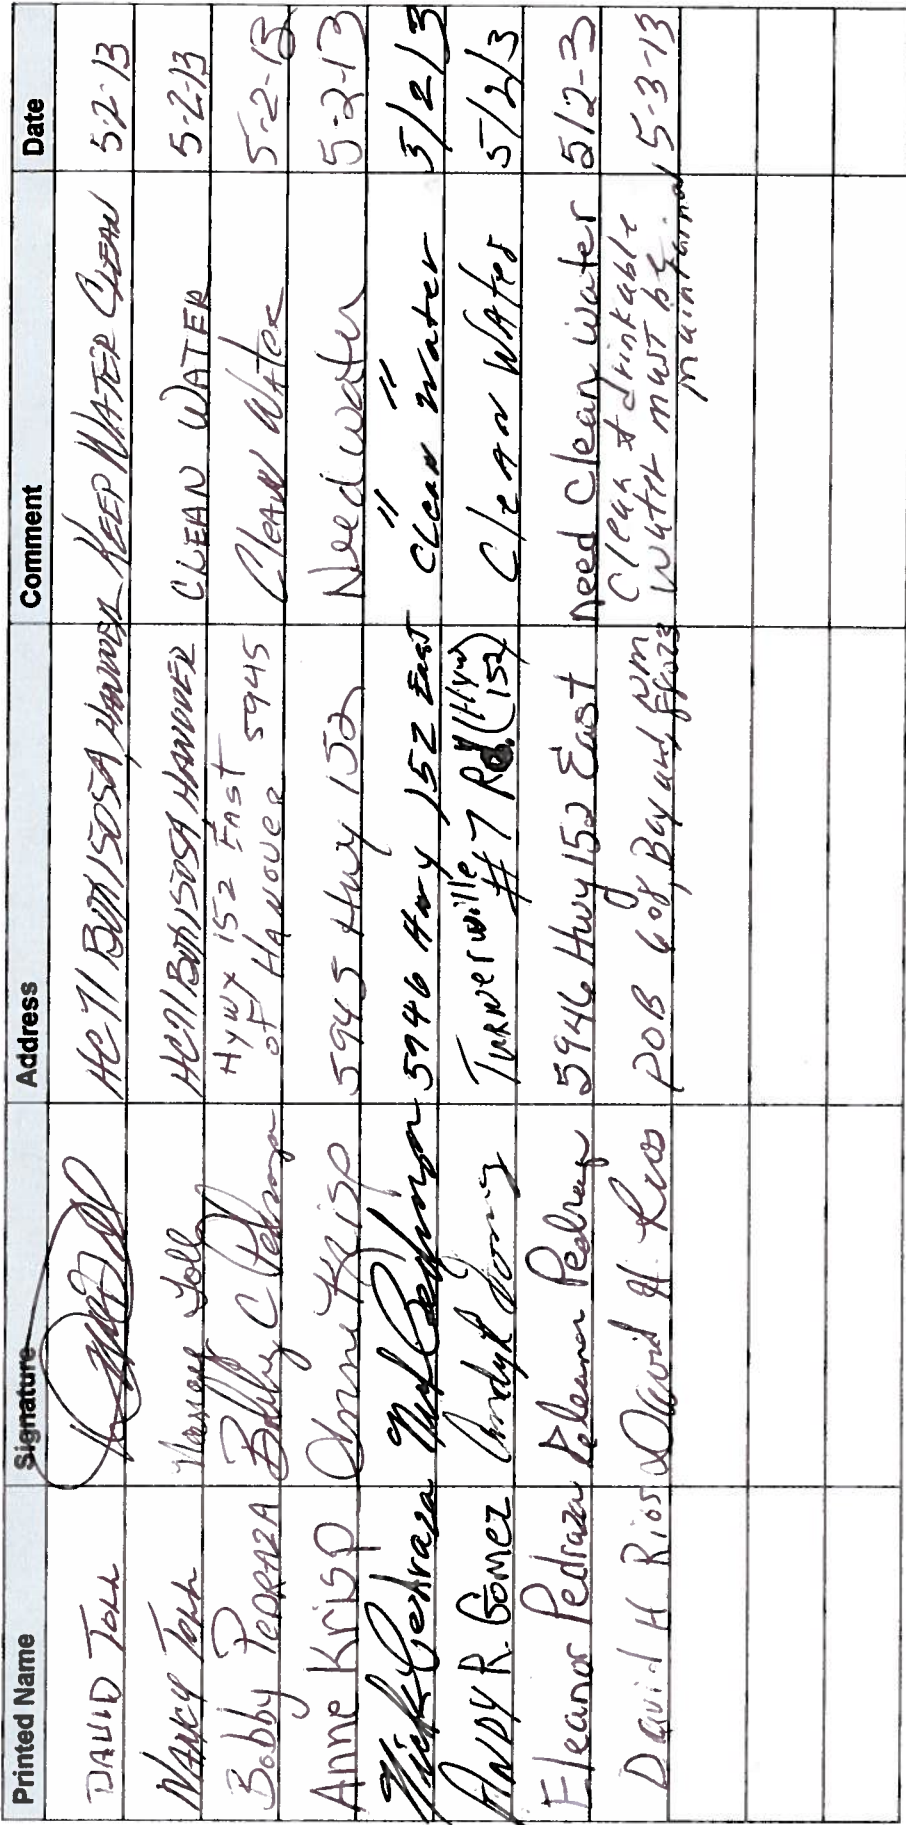 Printed Name Signature Address Comment Date
DAVID TOLL HC 71 Box 1505A HANOVER KEEP WATER CLEAN 5-2-13
NANCY TOLL Nancy Toll HC 71 Box 1505A HANOVER CLEAN WATER 5-2-13
Bobby PEDRAZA Bobby C Pedraza Hywy 152 EAST
of HANOVER 5945 Clean Water 5-2-13
Anne Krisp Anne Krisp 5945 Hwy 152 Need water 5-2-13
Nick Pedraza 5946 Hwy 152 East "Clean Water" 5/2/3
ANDY R. Gomez Andy R Gomez Turnerville #7 Rd. (Hyw 152) Clean Water 5/2/3
Eleanor Pedraza Eleanor Pedraza 5946 Hwy 152 East need Clean water 5/2-3
David H Rios David H Rios POB 608 Bayard, NM 88023 Clean & drinkable
water must be
maintained 5-3-13